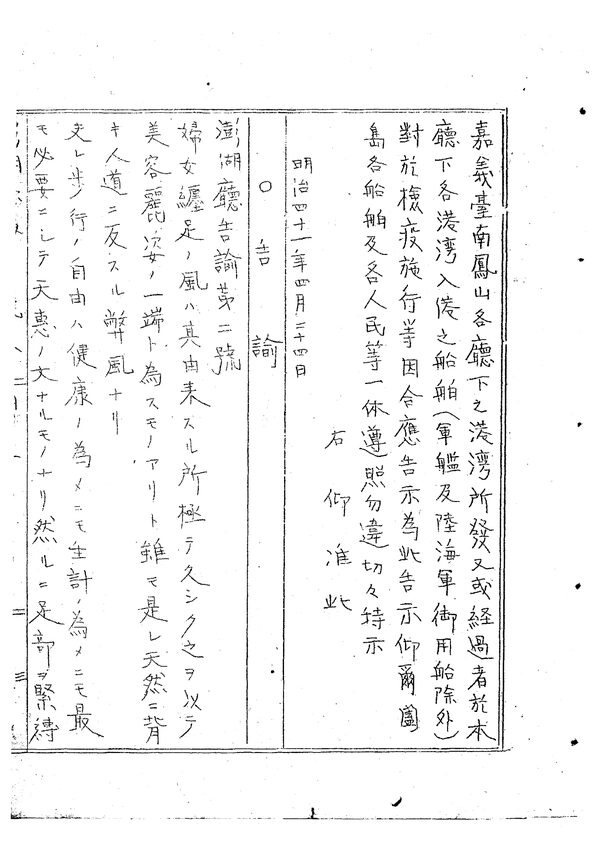 嘉義臺南鳳山各廳下之港灣所發又或経過者於本
廳下各港灣入港之船舶(軍艦及陸海軍御用船除外)
對於檢疫施行等因合應告示為此告示仰爾闔
島各船舶及各人民等一体遵照勿違切々特示
右仰准此
明治四十一年四月二十四日
○告諭
澎湖廳告諭第二號
婦女纏足ノ風ハ其由来スル所極テ久シク之ヲ以テ
美容麗姿ノ一端ト為スモノアリト雖モ是レ天然ニ背
キ人道ニ反スル弊風ナリ
夫レ歩行ノ自由ハ健康ノ為メニモ生計ノ為メニモ最
モ必要ニシテ天惠ノ大ナルモノナリ然ルニ足部ヲ緊縛